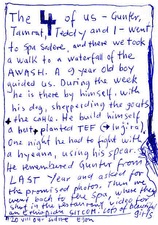 The 4 of us - Gunter,
Tamrat, Teddy and I - went
to Spa Sodere, and there we took
a walk to a waterfall of the
AWASH. A 9 year old boy
guided us. During the week
he is there by himself, with
his dog, shepperding the goats
+ the cattle. He build himself
a hut + planted TEF (→ Injira)
One night he had to fight with
a hyaena, using his spear.
He remembered Gunter from
LAST Year and asked for
the promised photos. Then we
went back to the Spa, where they
shot in the restaurant video for
an Ethiopian SITCOM. Lots of beautiful
girls